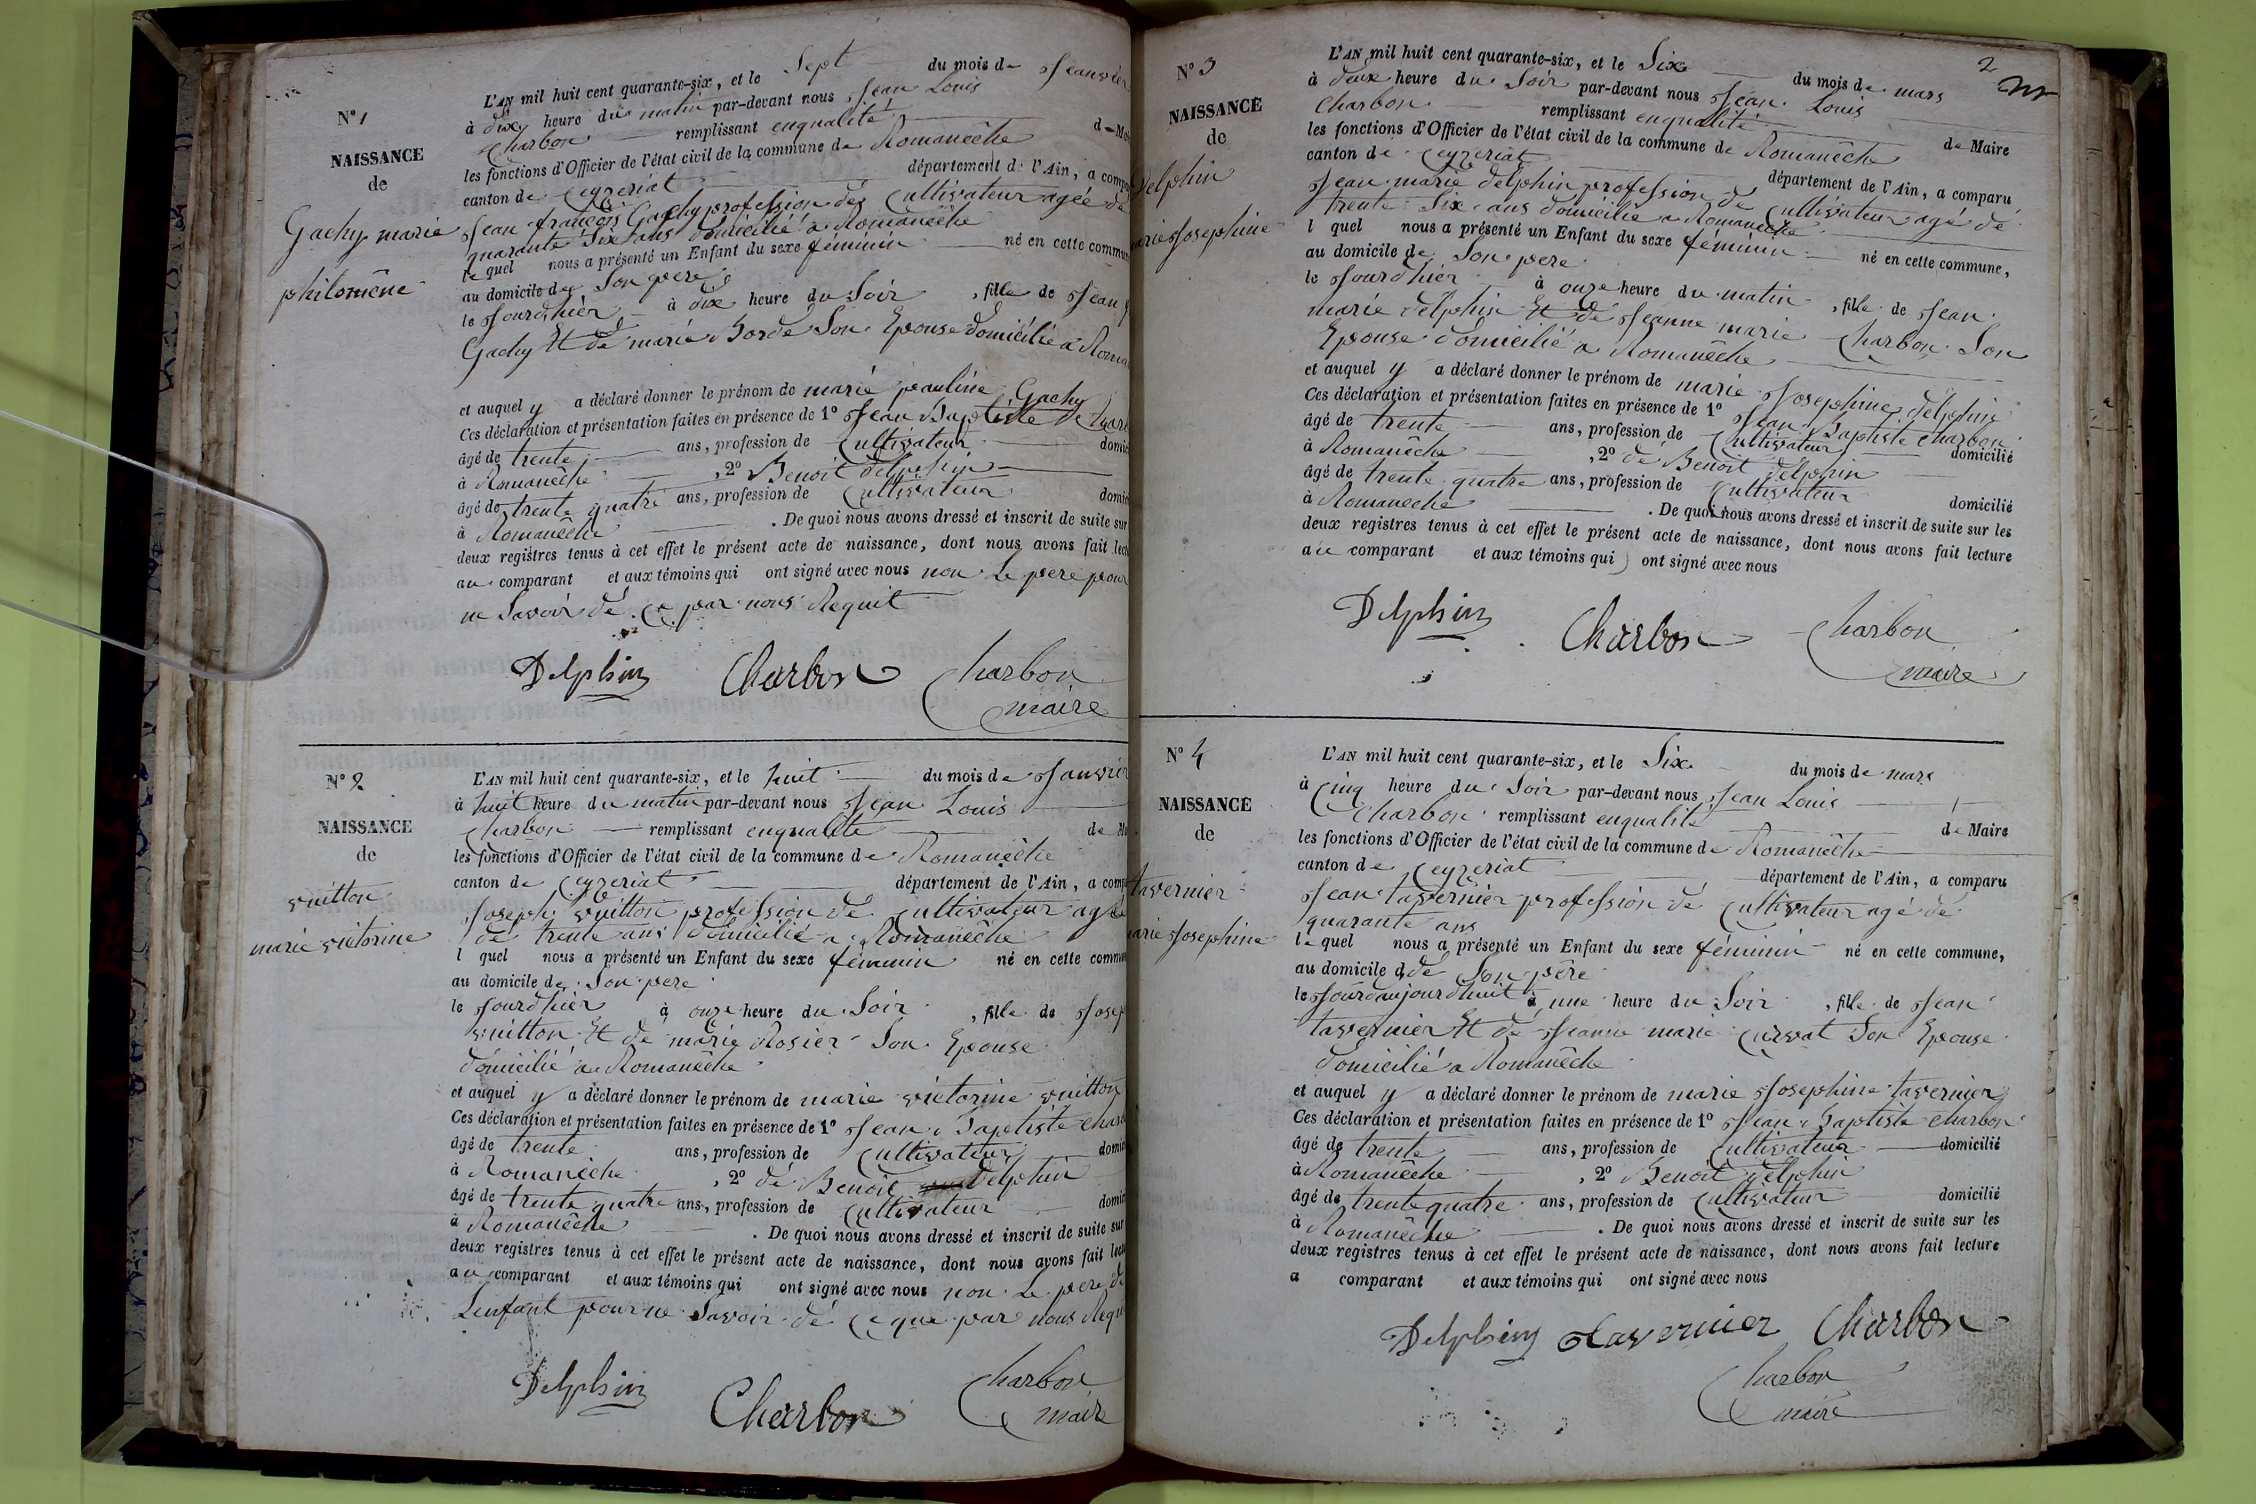 N° 1
NAISSANCE
de
Gachy marie
philomène
L'AN mil huit cent quarante-six, et le Sept du mois de Jeanvier
à dix heure du matin par-devant nous Jean Louis
Charbon remplissant enqualité de Ma
les fonctions d'Officier de l'état civil de la commune de Romanêche
canton de Ceyzeriat département de l'Ain, a compa
Jean françois Gachy profession de Cultivateur agée de
quarante Six ans domicilié a Romanêche
le quel nous a présenté un Enfant du sexe féminin né en cette commun
au domicile de Son pere
le Jourdhier à dix heure du Soir , fille de Jean f
Gachy Et de marie Borde Son Epouse domicilié a Roma
et auquel y a déclaré donner le prénom de marie pauline Gachy
Ces déclaration et présentation faites en présence de 1° Jean Baptiste Char
âgé de trente ans, profession de Cultivateur domici
à Romanêche , 2° Benoit delphin
âgé de trente quatre ans, profession de Cultivateur domici
à Romanêche . De quoi nous avons dressé et inscrit de suite sur
deux registres tenus à cet effet le présent acte de naissance, dont nous avons fait lect
au comparant et aux témoins qui ont signé avec nous non le pere pour
ne Savoir dé ce par nous Requit
Delphin Charbon Charbon
maire
N° 2
NAISSANCE
de
vuitton
marie victorine
L'AN mil huit cent quarante-six, et le huit du mois de Janvier
à huit heure du matin par-devant nous Jean Louis
Charbon remplissant enqualité de Ma
les fonctions d'Officier de l'état civil de la commune de Romanêche
canton de Ceyzeriat département de l'Ain, a compa
Joseph vuitton profession de Cultivateur agé
de trente ans domicilié a Romanêche
l quel nous a présenté un Enfant du sexe féminin né en cette commun
au domicile de Son pere
le Jourdhier à onze heure du Soir , fille de Josep
vuitton Et de marie Rosier Son Epouse
domicilié a Romanêche
et auquel y a déclaré donner le prénom de marie victorine vuitton
Ces déclaration et présentation faites en présence de 1° Jean Baptiste Charb
âgé de trente ans, profession de Cultivateur domici
à Romanêche , 2° dé Benoit delphin
âgé de trente quatre ans, profession de Cultivateur domici
à Romanêche . De quoi nous avons dressé et inscrit de suite sur
deux registres tenus à cet effet le présent acte de naissance, dont nous avons fait lectu
au comparant et aux témoins qui ont signé avec nous non le pere de
Lenfant pour ne Savoir dé ce que par nous Requ
Delphin Charbon Charbon
maire
2
N° 3
NAISSANCE
de
Delphin
marie Josephine
L'AN mil huit cent quarante-six, et le Six du mois de mars
à deux heure du Soir par-devant nous Jean Louis
Charbon remplissant enqualité de Maire
les fonctions d'Officier de l'état civil de la commune de Romanêche
canton de Ceyzeriat département de l'Ain, a comparu
Jean marie delphin profession de Cultivateur agé dé
trente Six ans domicilié a Romanêche
l quel nous a présenté un Enfant du sexe féminin né en cette commune,
au domicile de Son pere
le Jourdhier à onze heure du matin , fille de Jean
marie delphin Et de Jeanne marie Charbon Son
Epouse domicilié a Romanêche
et auquel y a déclaré donner le prénom de marie Josephine delphin
Ces déclaration et présentation faites en présence de 1° Jean Baptiste Charbon
âgé de trente ans, profession de Cultivateur domicilié
à Romanêche , 2° de Benoit delphin
âgé de trente quatre ans, profession de Cultivateur domicilié
à Romanêche . De quoi nous avons dressé et inscrit de suite sur les
deux registres tenus à cet effet le présent acte de naissance, dont nous avons fait lecture
au comparant et aux témoins qui ont signé avec nous
Delphin Charbon Charbon
maire
N° 4
NAISSANCE
de
tavernier
marie Josephine
L'AN mil huit cent quarante-six, et le Six du mois de mars
à Cinq heure du Soir par-devant nous Jean Louis
Charbon remplissant enqualité de Maire
les fonctions d'Officier de l'état civil de la commune de Romanêche
canton de Ceyzeriat département de l'Ain, a comparu
Jean tavernier profession dé Cultivateur agé dé
quarante ans
le quel nous a présenté un Enfant du sexe féminin né en cette commune,
au domicile d dé Son père
le Jour aujourdhuit à une heure du Soir , fille de Jean
tavernier Et dé Jeanne marie Curvat Son Epouse
domicilié a Romanêche
et auquel y a déclaré donner le prénom de marie Josephine tavernier
Ces déclaration et présentation faites en présence de 1° Jean Baptiste Charbon
âgé de trente ans, profession de Cultivateur domicilié
à Romanêche , 2° Benoit delphin
âgé de trente quatre ans, profession de Cultivateur domicilié
à Romanêche . De quoi nous avons dressé et inscrit de suite sur les
deux registres tenus à cet effet le présent acte de naissance, dont nous avons fait lecture
a comparant et aux témoins qui ont signé avec nous
Delphin tavernier Charbon
Charbon
maire